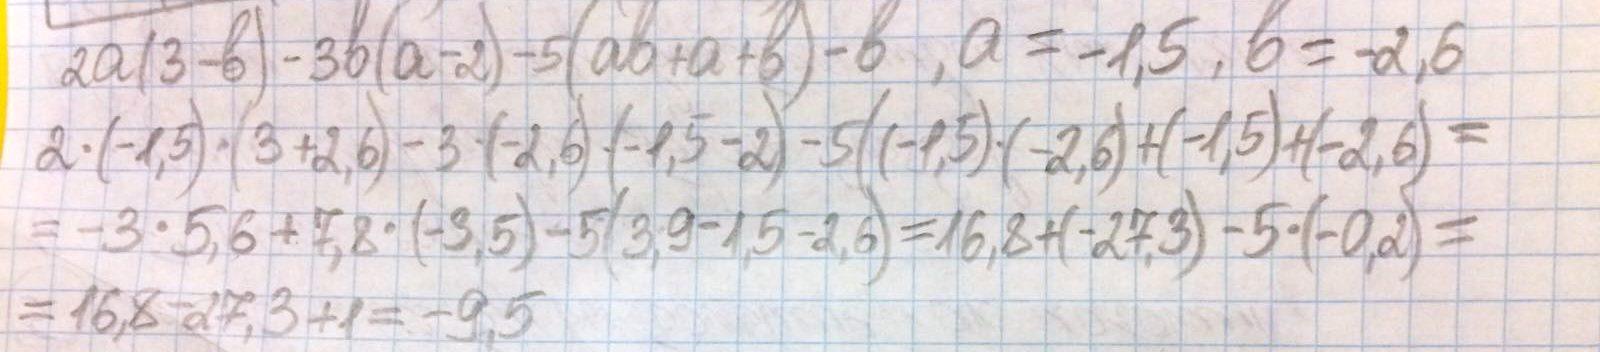 2a(3-b)-3b(a-2)-5(ab+a+b)-b, a=-1,5, b=-2,6
2·(-1,5)·(3+2,6)-3·(-2,6)·(-1,5-2)-5((-1,5)·(-2,6)+(-1,5)+(-2,6)=
=-3·5,6+7,8·(-3,5)-5(3,9-1,5-2,6)=16,8+(-27,3)-5·(-0,2)=
=16,8-27,3+1=-9,5